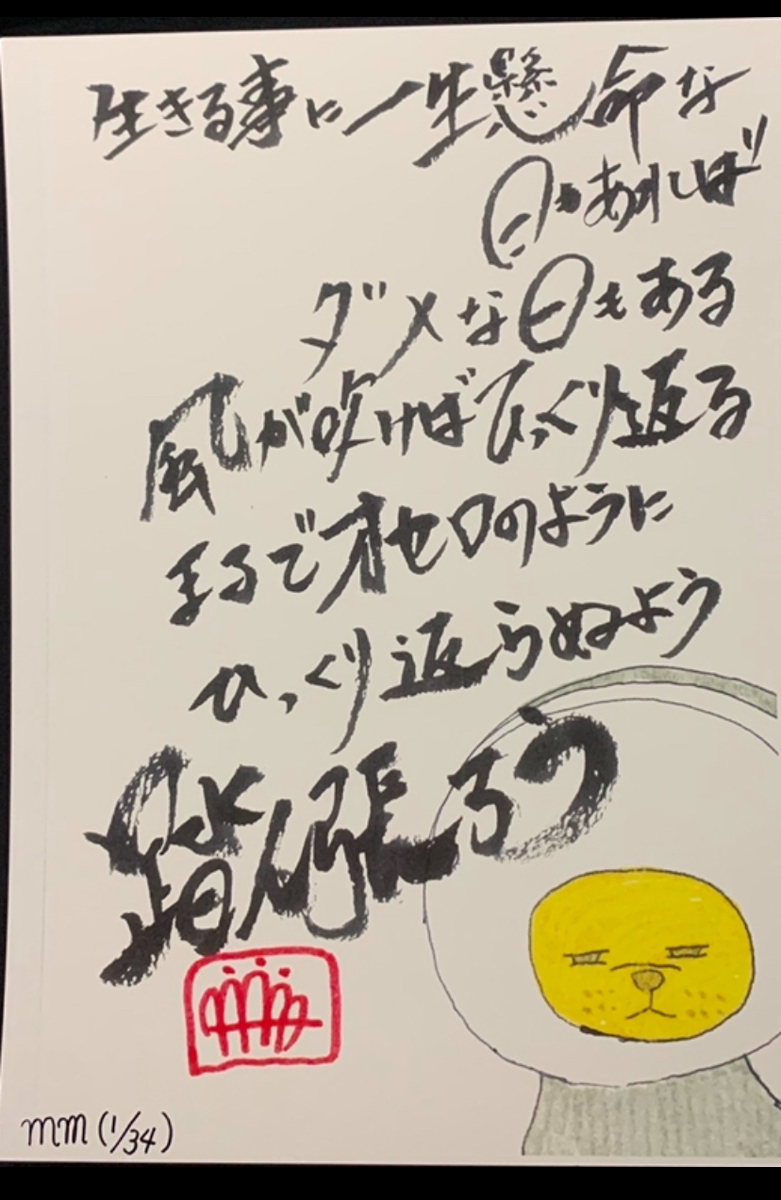 生きる事に一生懸命な
日もあれば
ダメな日もある
風が吹けばひっくり返る
まるでオセロのように
ひっくり返らぬよう
踏ん張ろう
mm (1/34)